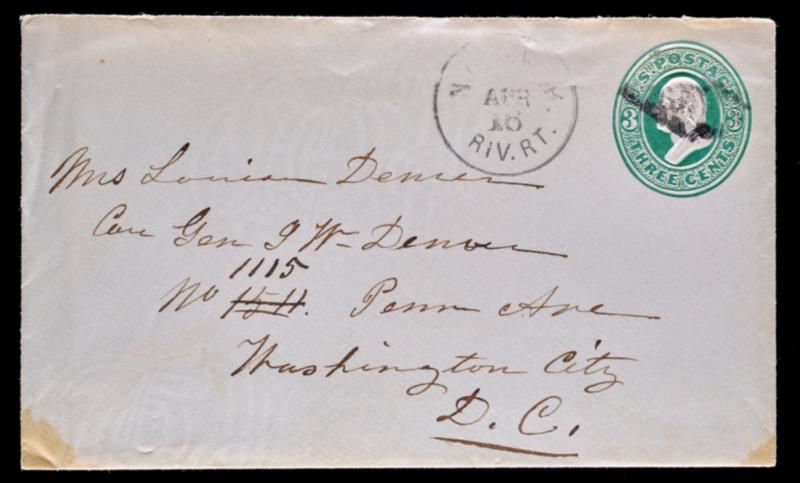 U.S. POSTAGE
3 3
THREE CENTS
APR
16
RIV. RT.
Mrs Louisa Denver
Care Gen J W Denver
1115
No 1511. Penn Ave
Washington City
D.C.